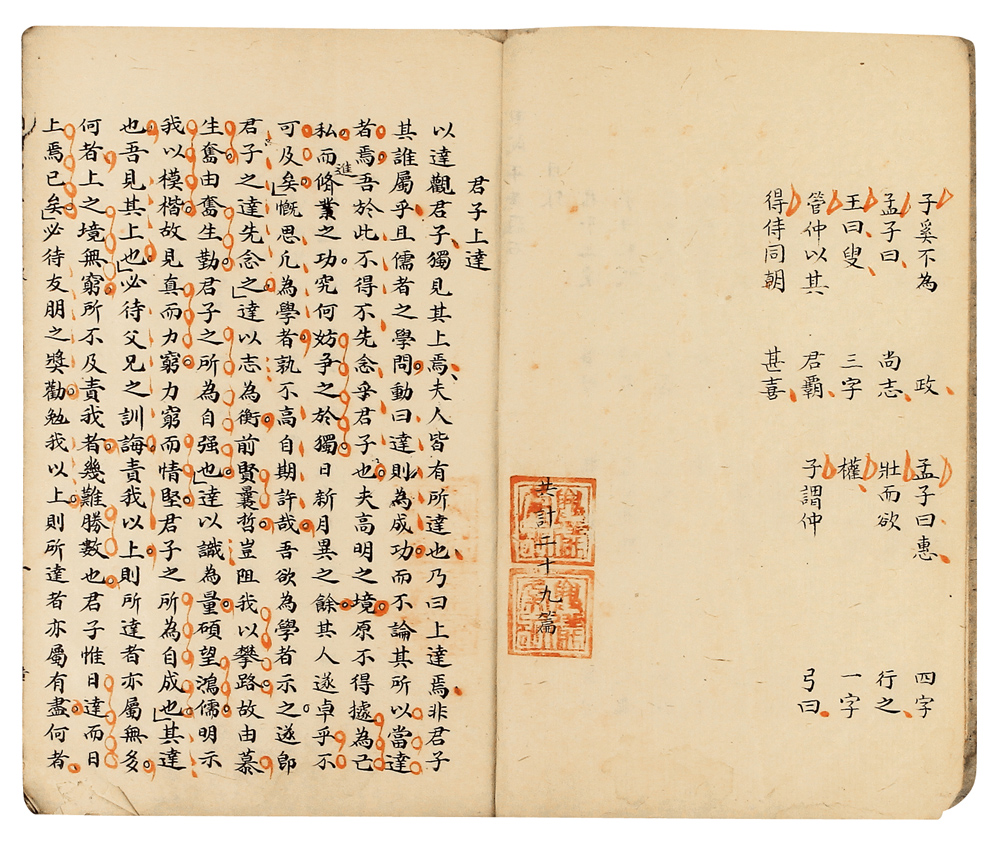 子奚不為　政　孟子曰惠　四字
孟子曰　尚志　壯而欲　行之
王曰叟　三字　權　一字
管仲以其　君霸　子謂仲　弓曰
得侍同朝　甚喜
共計二十九篇
君子上達
以達觀君子獨見其上焉夫人皆有所達也乃曰上達焉非君子
其誰屬乎且儒者之學問動曰達則為成功而不論其所以當達
者焉吾於此不得不先念乎君子也夫高明之境原不得據為己
私而進脩業之功究何妨爭之於獨日新月異之餘其人遂卓乎不
可及矣慨思凢為學者孰不高自期許哉吾欲為學者示之遂卽
君子之達先念之達以志為衡前賢曩哲豈阻我以攀路故由慕
生奮由奮生勤君子之所為自强也達以識為量碩望鴻儒明示
我以模楷故見真而力窮力窮而情堅君子之所為自成也其達
也吾見其上也必待父兄之訓誨責我以上則所達者亦屬無多
何者上之境無窮所不及責我者幾難勝數也君子惟日達而日
上焉已矣必待友朋之奬勸勉我以上則所達者亦屬有盡何者